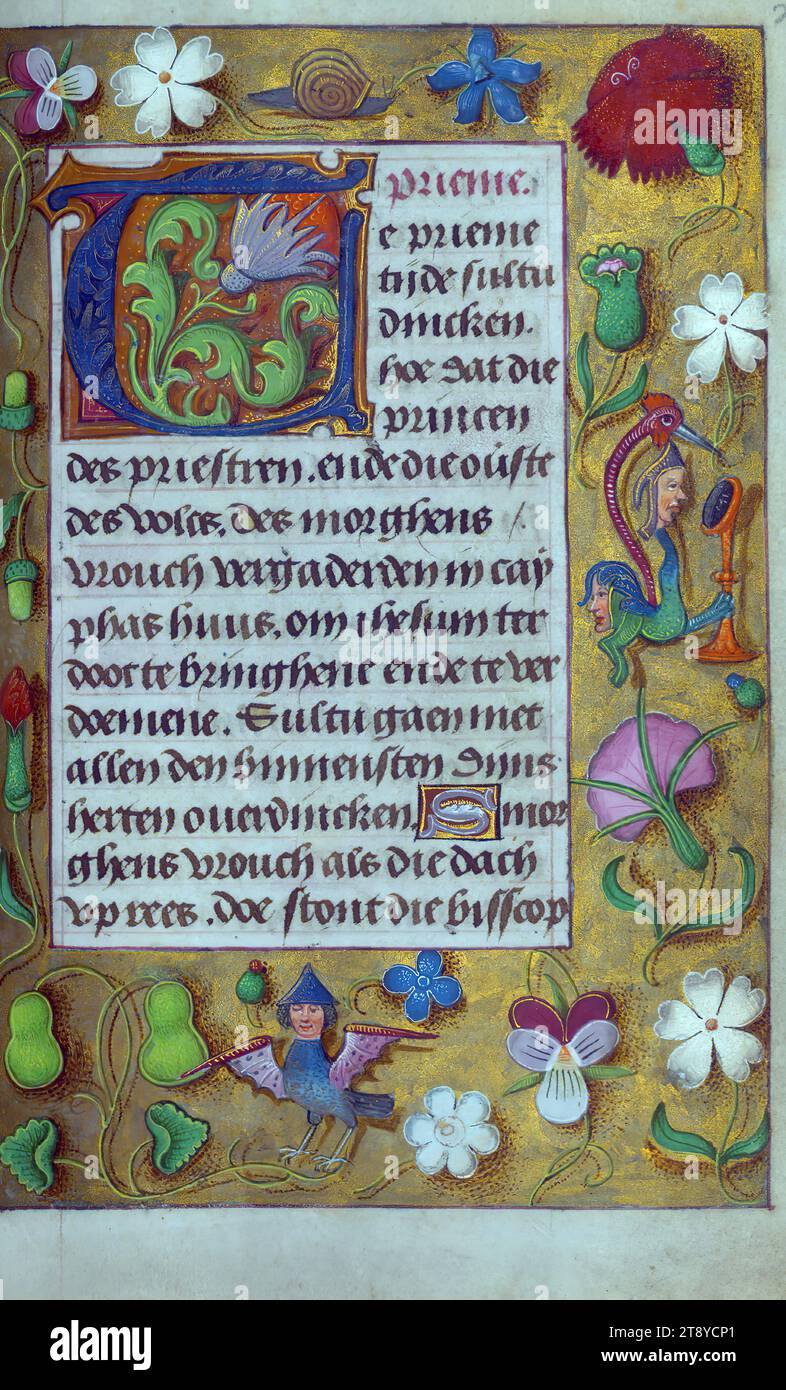 2
prieme.
Te prieme
tijde sultu
dincken.
hoe dat die
princen
des priestren. ende die ouste
des volcs. des morghens
vrouch vergaderden in cay
phas huus. om ihesum ter
doot te bringhene ende te ver
doemene. Sultu gaen met
allen den binnensten dijns
herten overdincken. Smor
ghens vrouch als die dach
up rees. doe stont die bisscop
alamy
Image ID: 2T8YCP1
www.alamy.com